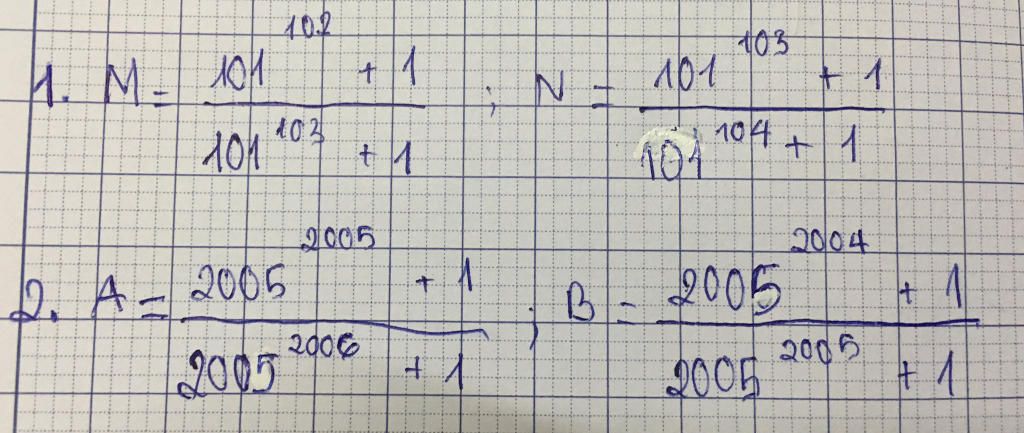 1. M = (101^102 + 1) / (101^103 + 1) ; N = (101^103 + 1) / (101^104 + 1)
2. A = (2005^2005 + 1) / (2005^2006 + 1) ; B = (2005^2004 + 1) / (2005^2005 + 1)